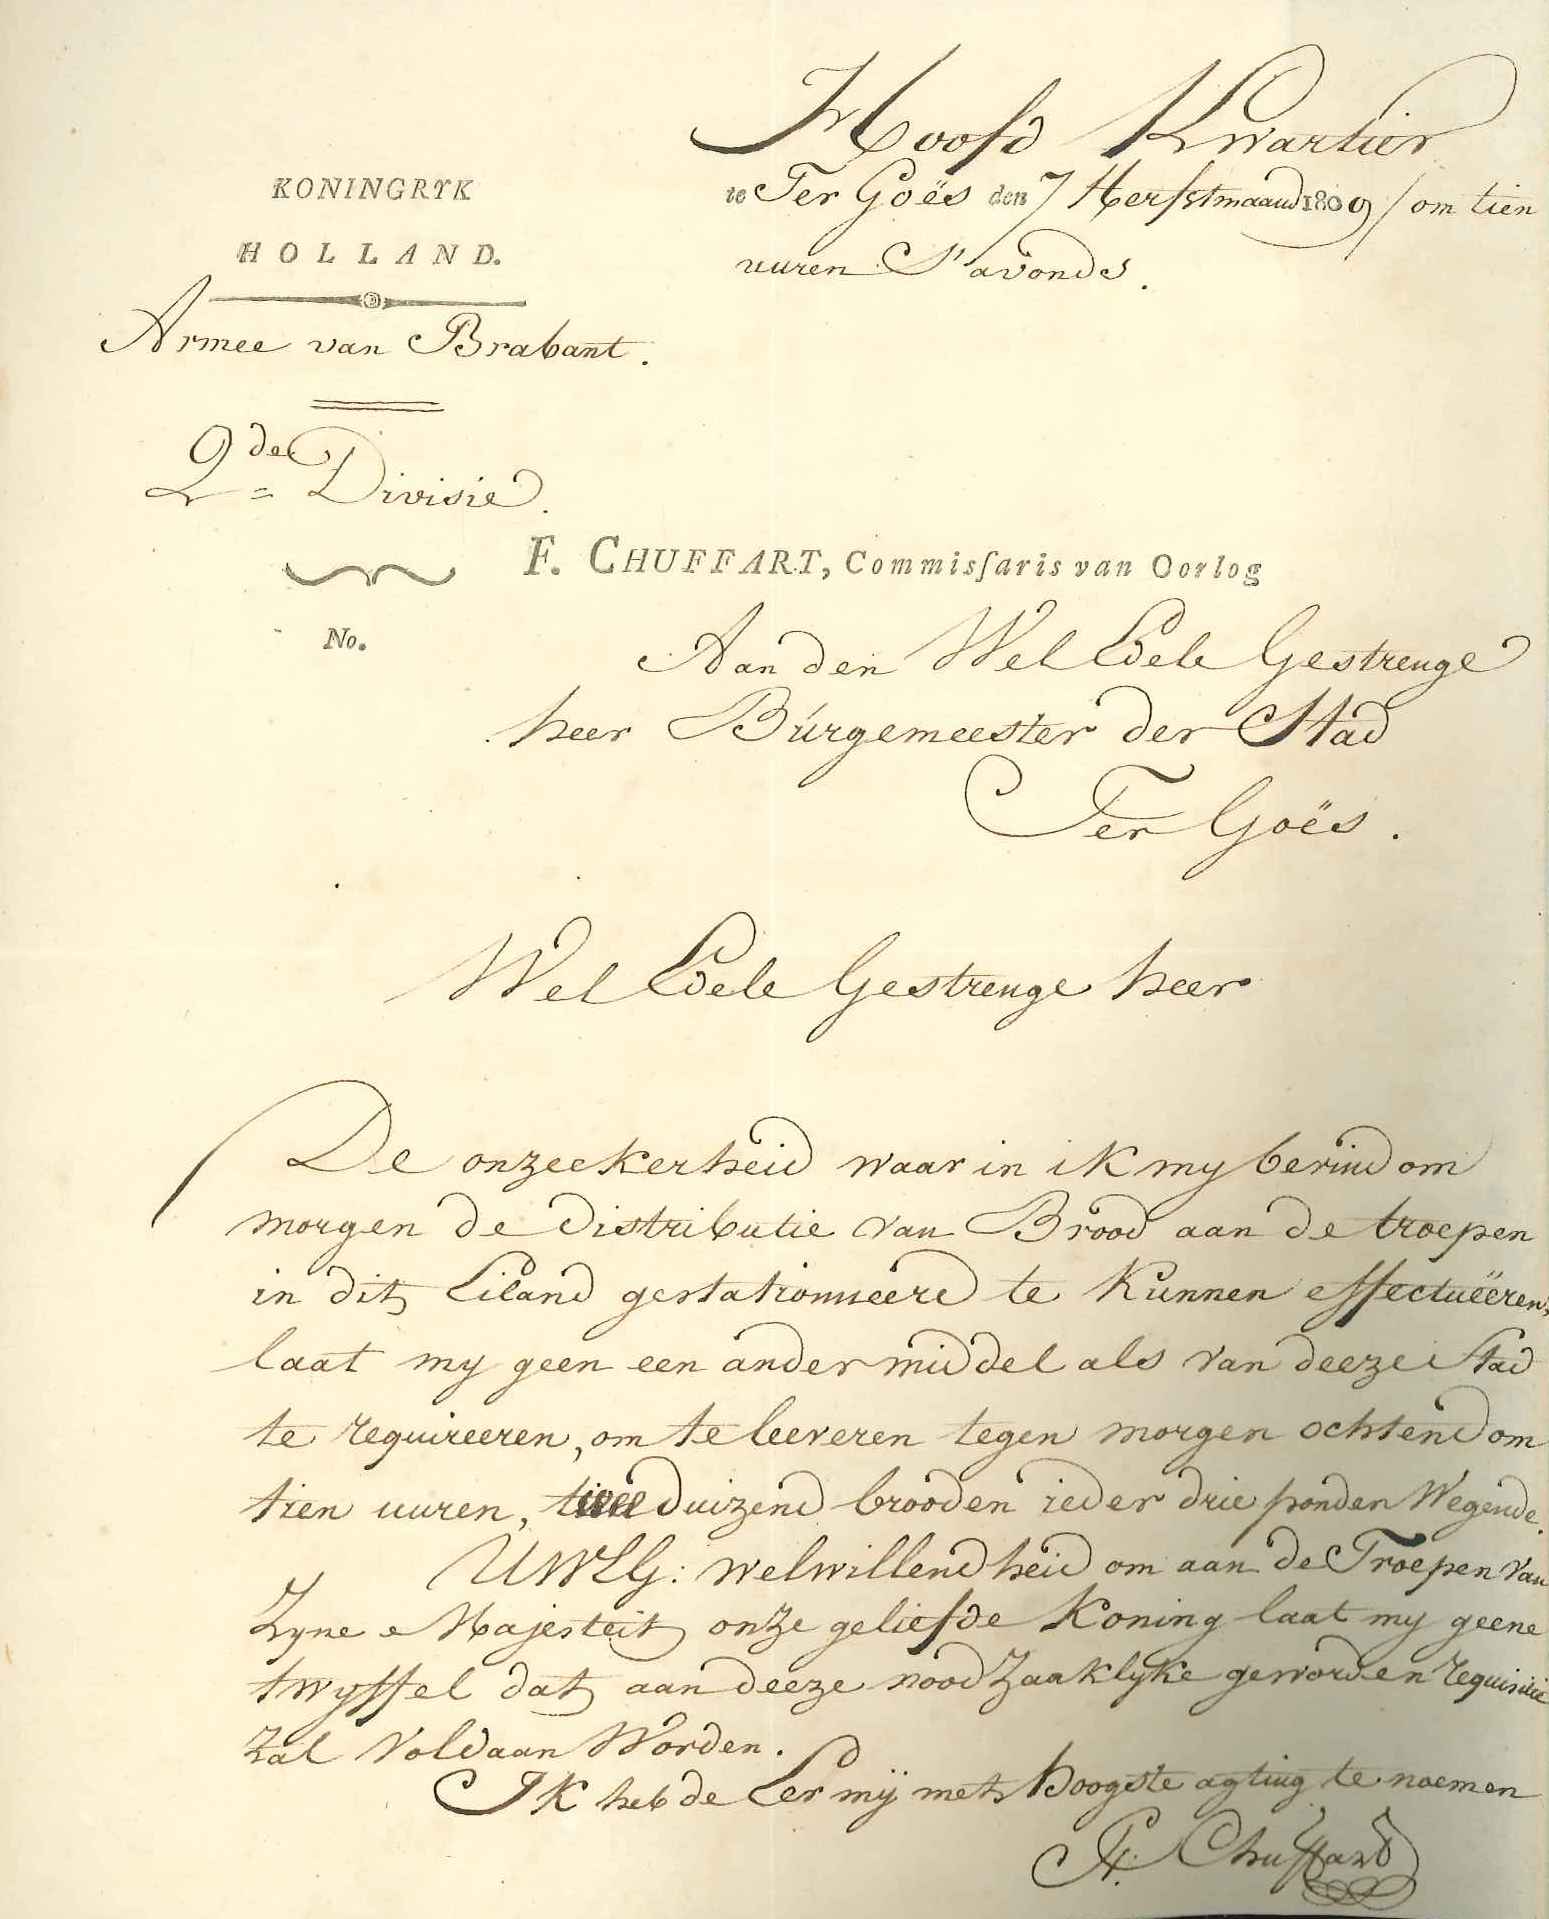 Hoofd Kwartier
te Ter Goës den 7 Herfstmaand 1809 / om tien
uuren S'avonds.
KONINGRYK
HOLLAND.
Armee van Brabant.
2de Divisie.
F. CHUFFART, Commisſaris van Oorlog
No.
Aan den Wel Edele Gestrenge
heer Burgemeester der Stad
Ter Goës.
Wel Edele Gestrenge heer
De onzeekerheid waar in ik my bevind om
morgen de distributie van Brood aan de troepen
in dit Eiland gestationneerd te kunnen effectuëeren,
laat my geen een ander middel als van deeze Stad
te requireeren, om te leeveren tegen morgen ochtend om
tien uuren, duizend brooden ieder drie ponden Wegende.
UWEG: welwillendheid om aan de Troepen van
Zyne Majesteit onze geliefde Koning laat my geene
twyffel dat aan deeze noodzaaklyke geworden requisitie
zal voldaan Worden.
Ik heb de Eer mij met hoogste agting te noemen
Fr. Chuffart